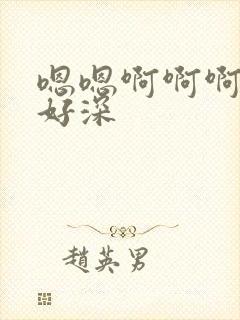 嗯嗯啊啊啊
好深
趙英男